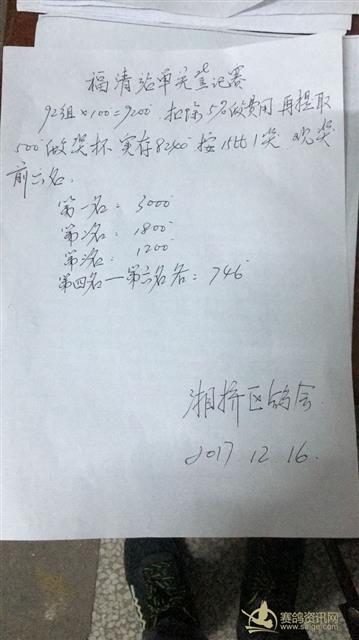 福清站单羽登记赛
92组×100=9200元 扣除5%做费用再提取
500元做奖杯 实存8240元 按15比1奖 取奖
前六名.
第一名: 3000元
第二名: 1800元
第三名: 1200元
第四名—第六名各: 746元
湘桥区鸽会
2017.12.16.
赛鸽资讯网
www.saige.com